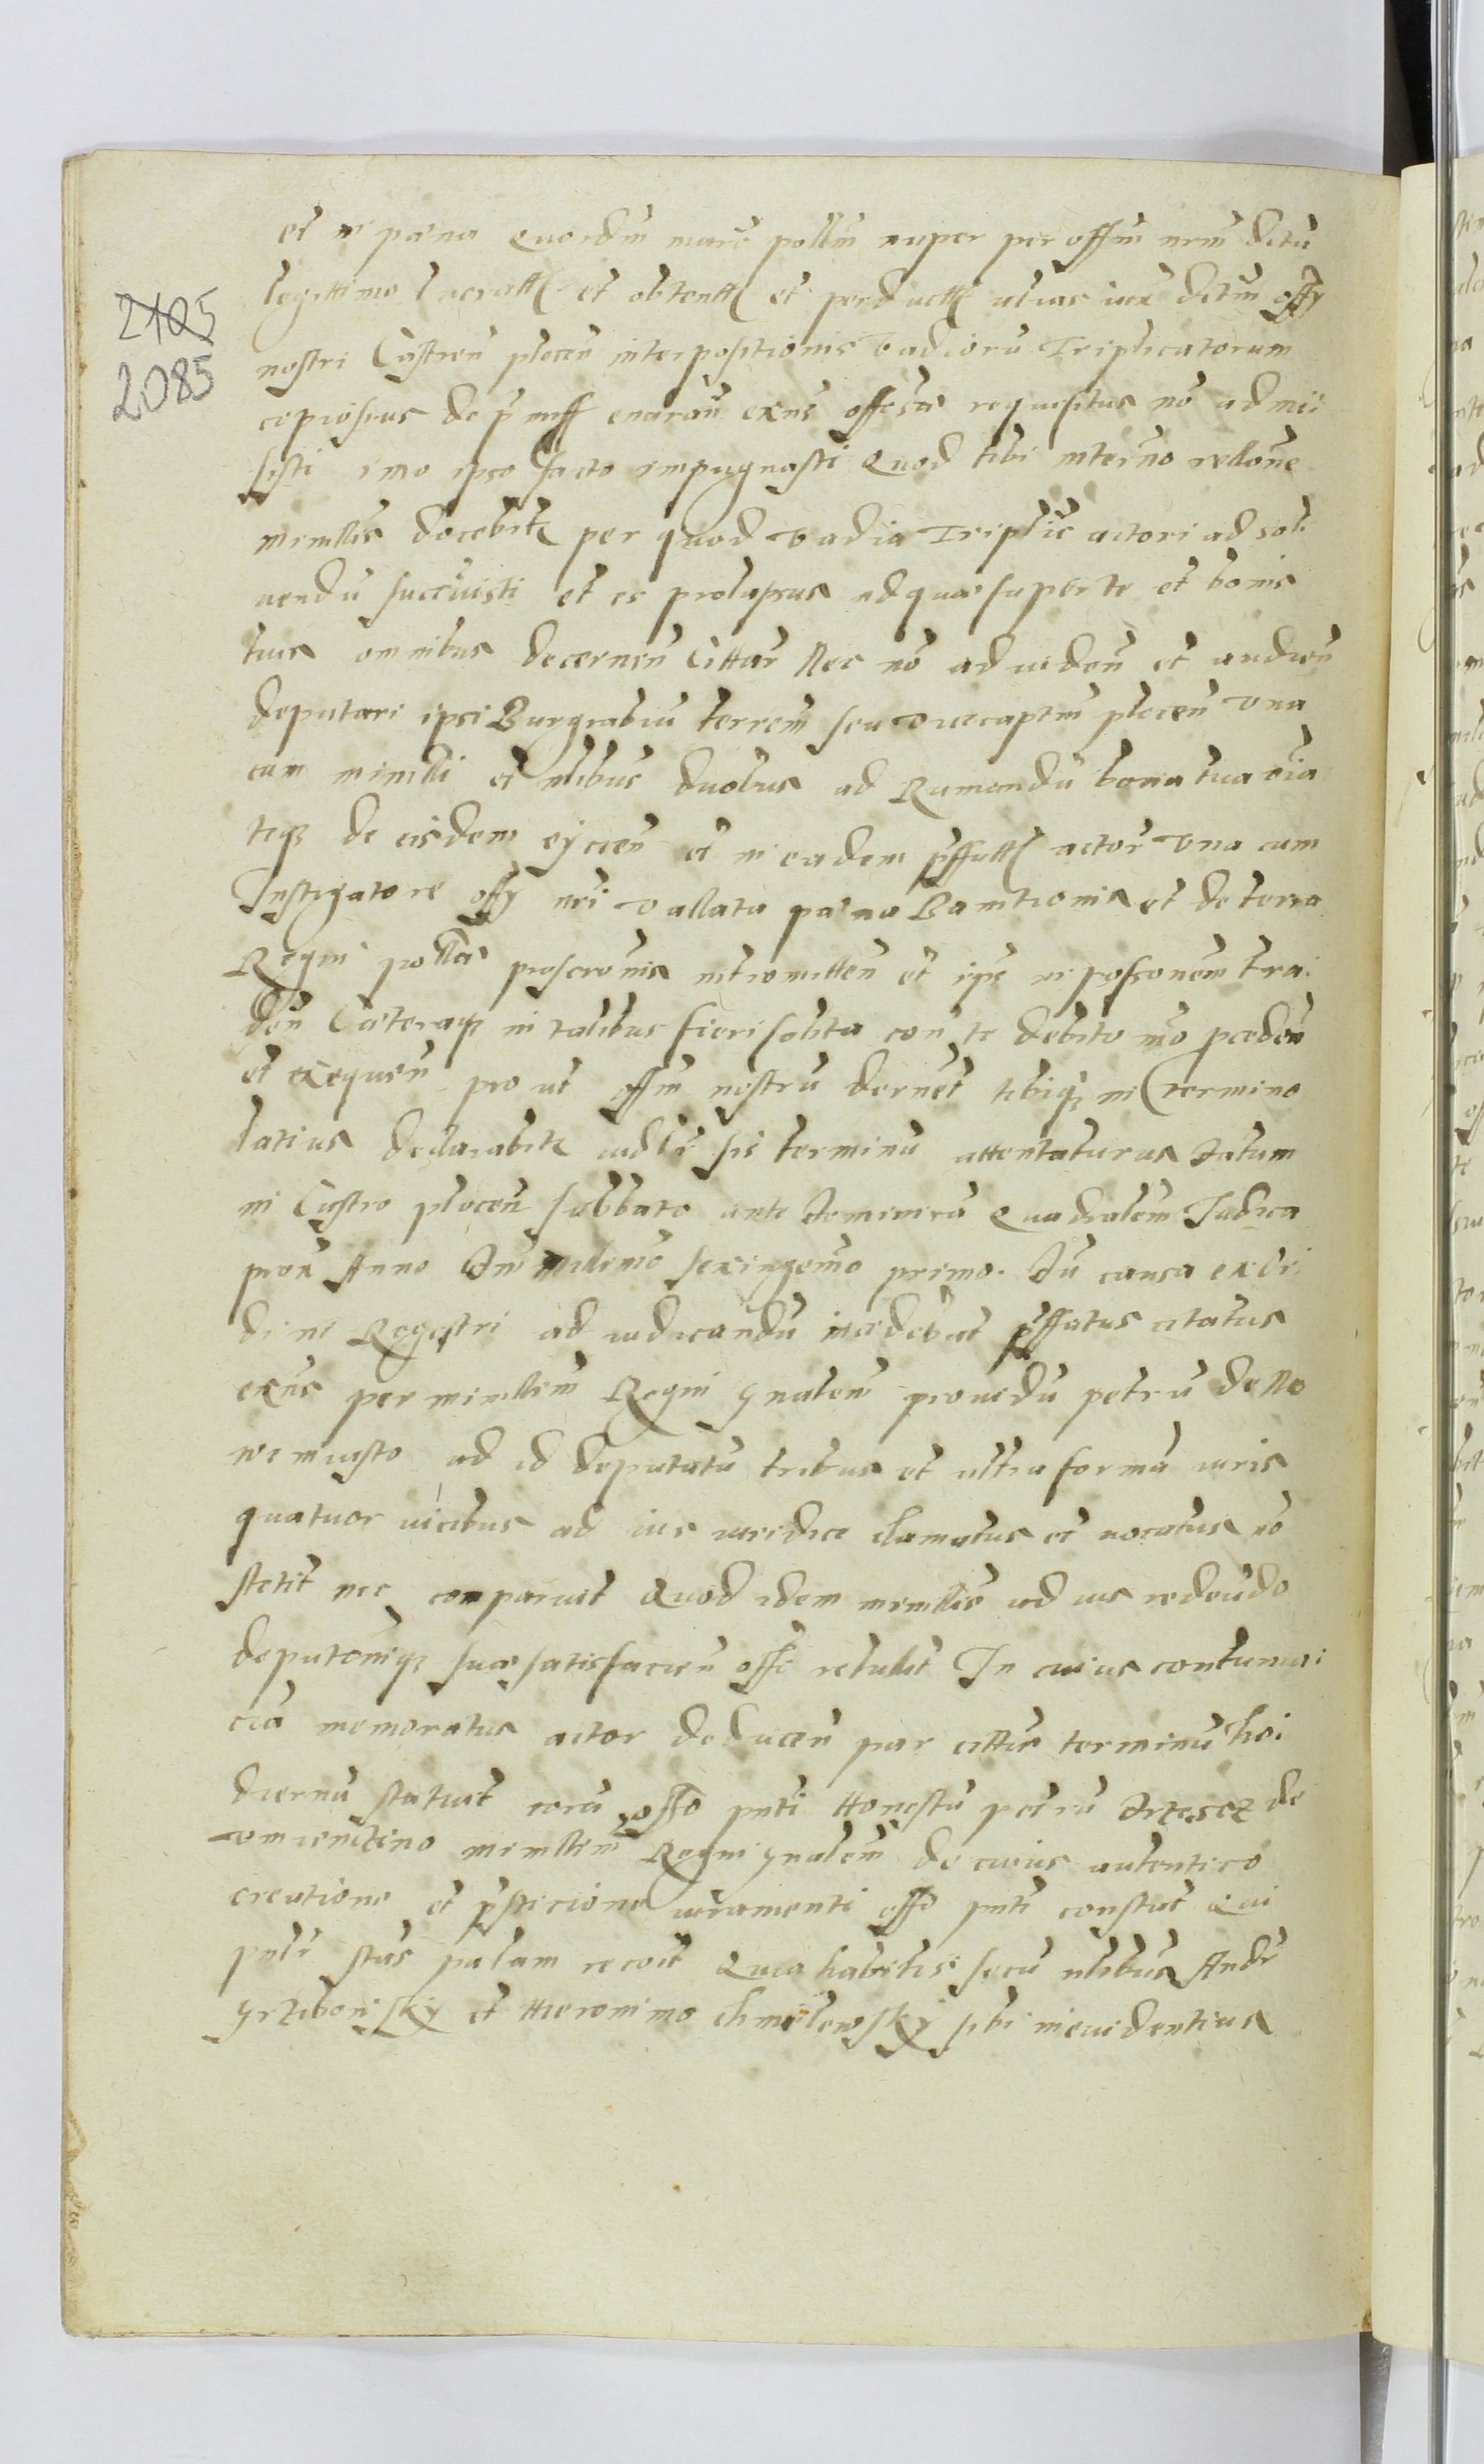 2105
2085
et in paena quordm marc pollm nuper per offm nrm dictu
legittime lucratt et obtentt et perductt alias iux dictm offy
nostri Castren plocen interpositionis vadioru Triplicatorum
copiosius de p miss enaran exns offose requisitus no admi
sisti imo ipso facto impugnasti Quod tibi interno rellone
ministris docebitr per quod vadia Triplic actori ad sol
uendu succuisti et es prolapsus ad quae super te et bonis
tuis omnibus decernen Cittar Nec no ad viden et audien
deputari ipsi Burgrabiu terrem seu vicecaptm plocen vna
cum ministri et nlibus duobus ad Rumandu bona tua oia
teq de eisdem eyicien et in eadem pffatt actor vna cum
Instigatore offy nri vallata paena Banitionis et de terra
Regni pollae proscronis intromitten et ipse in possonem tra
den Caeteraq in talibus fieri solita con te debito mo proceden
et exequen pro ut offm nostru dernet tibiq in termino
latius declarabitr iudlr sis terminu attentaturus Datum
in Castro plocen sabbato ante dominica Quadralem Iudica
pron Anno Dni millimo sexingemo primo. Du causa ex or
dine Regestri ad iudicandu incidebat pffatus citatus
exns per ministrm Regni gnalem prouidu petru de No
wemiasto ad id deputatu tribus et ultra forma iuris
quatuor vicibus ad ius iuridice clamatus et vocatus no
stetit nec comparuit Quod idem ministris ad ius redeundo
deputoniq suae satisfacien offo retulit In cuius contuma
cia memoratus actor deducen par cittus terminu hoi
diernu statuit cora offo pnti Honestu petru de
ministrm Regni gnalem de cuius autentico
creatione et pstitione iuramenti offo pnti constat Qui
pnlr stus palam recoit Quia habitis secu nlibus Andr
Grzibowsky et Hieronimo Chmielewsky sibi ineuidentius